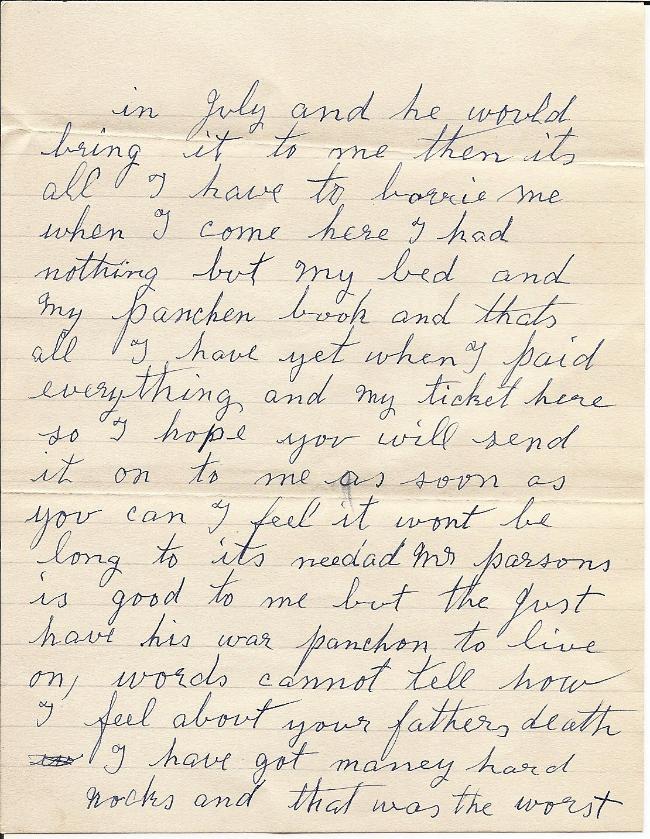 in July and he would
bring it to me then its
all I have to borrie me
when I come here I had
nothing but my bed and
my panchen book and thats
all I have yet when I paid
everything and my ticket here
so I hope you will send
it on to me as soon as
you can I feel it wont be
long to its needad Mr parsons
is good to me but the Just
have his war panchon to live
on, words cannot tell how
I feel about your fathers death
I have got manney hard
nocks and that was the worst